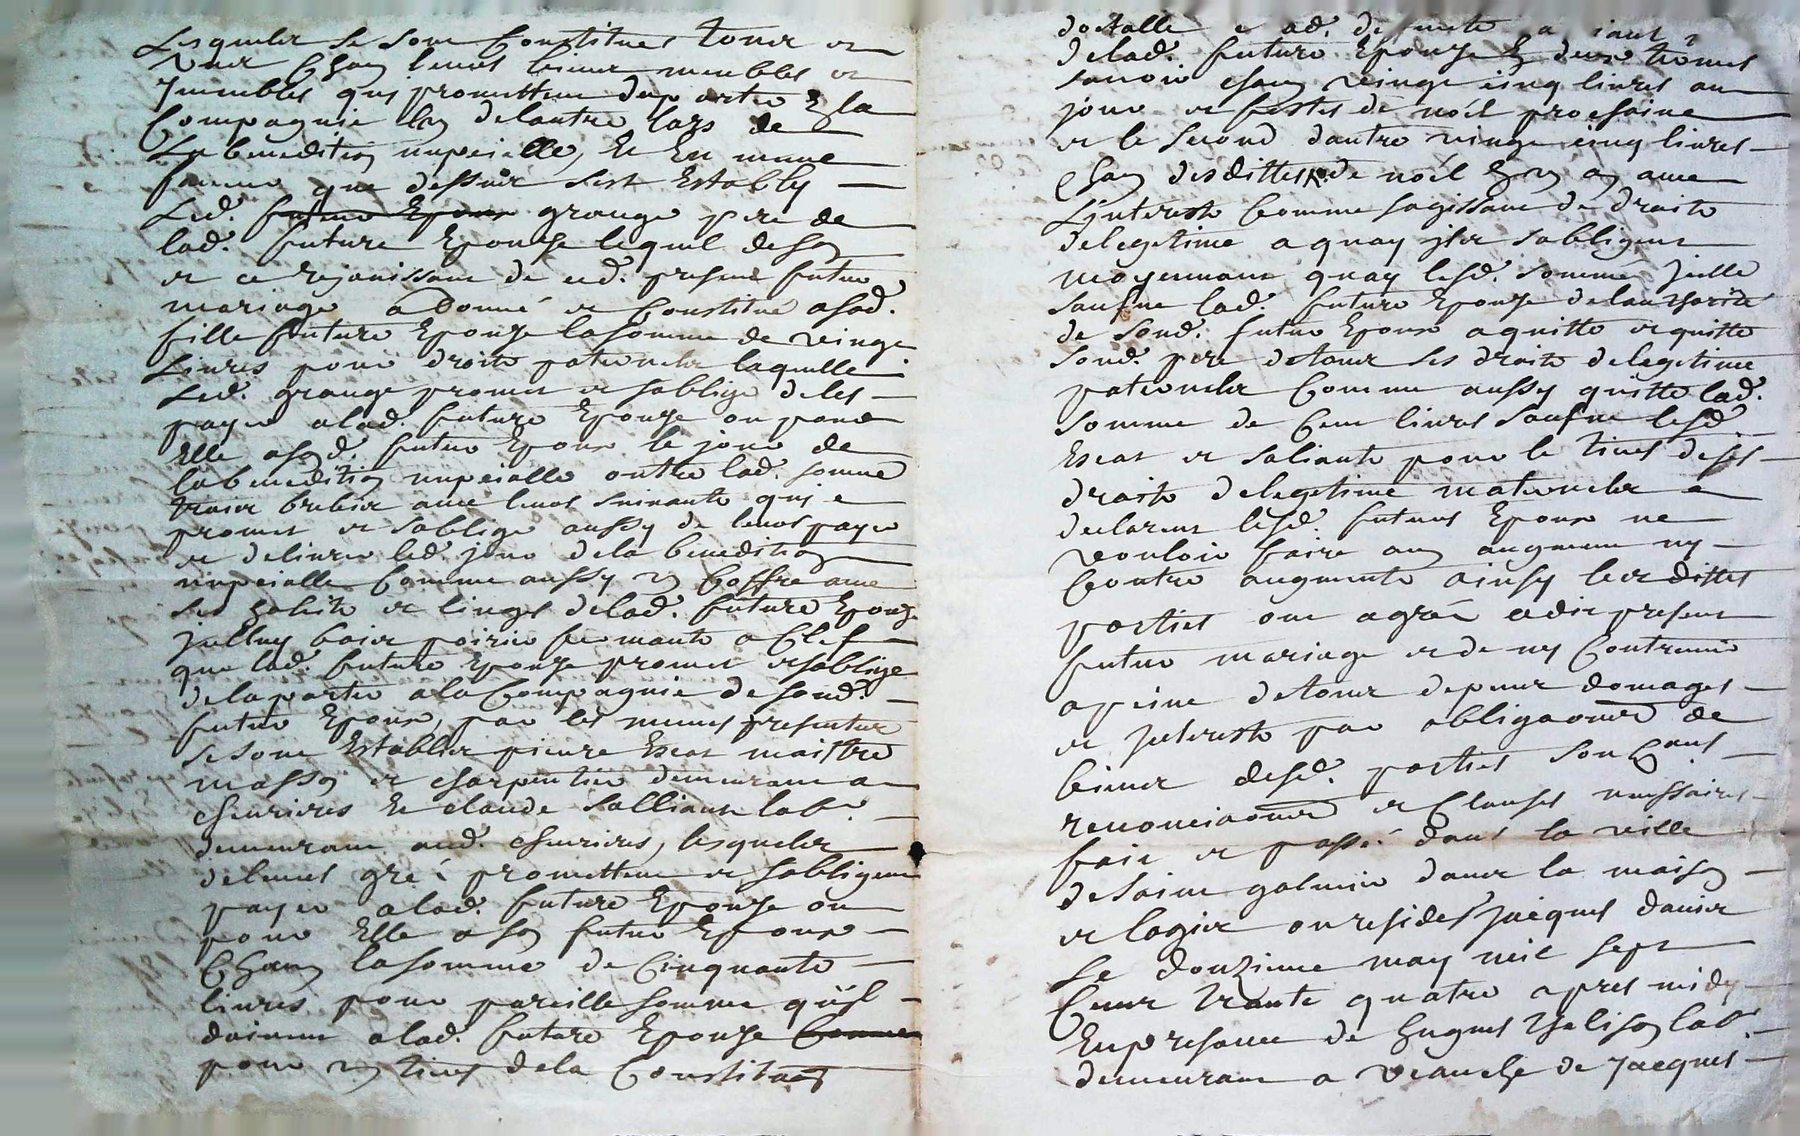 Lesquels se sont Constitues tous et
un Chun leurs biens meubles et
Jmeubles quy promettent daporter a la
Compagnie lun delautre lors de
La benedition nupcialle, Et En meme
forme que dessus sest Estably
Led. futur Epoux grange pere de
lad. future Epouze lequel de son
et ce rejouissant de cud. present futur
mariage a Donné et Constitué a sad.
fille future Epouze lasomme de vingt
Livres pour droits paternels laquelle
Led. grange promet et soblige deles
payer a lad. future Epouze ou pour
Elle asod. futur Epoux le jour de
la benedition nupcialle outre lad. somme
trois brebis avec leurs suivants quj
promet et soblige aussy de leurs payer
et delivrer led. jour dela benedition
nupcialle Comme aussy un Coffre avec
ses habits et linges delad. future Epouze
Jcelluy bois poirier fermante a Clef
que lad. future Epouze promet et soblige
de la porter a la Compagnie de sond.
futur Epoux, par les memes presentes
se sont Establis pierre Escot maistre
masson et charpentier demeurant a
chevrieres Et claude Salliant lab.
demeurant aud. chevrieres, lesquels
deleurs gré promettent et sobligent
payer a lad. future Epouze ou
pour Elle a son futur Epoux
Chun lasomme de Cinquante
livres pour pareille somme qu'jl
doivent a lad. future Epouze Comme
pour un tiers dela Constitution
dottalle
delad. future Epouze En deux termes
savoir chun vingt cinq livres au
jour et festes de noél prochaine
et le second dautre vingt cinq livres
Chun desdittes de noél En un an avec
Linterest Comme sagissant de droits
delegitime a quoy jls sobligent
moyennant quoy lesd. sommes Jcelle
saufne lad. future Epouze delauthorité
de sond. futur Epoux a quitté et quitte
sond. pere detous ses droits delegitime
paternels Comme aussy quitte lad.
somme de Cent livres saufne lesd.
Escot et saliants pour le tiers deses
droits delegitime maternels
declarent lesd. futurs Epoux ne
vouloir faire aun augment ny
Contre augments ainsy lesdittes
parties ont agréé cedit present
futur mariage et de ny Contrevenir
a peine detous depens domages
et Jnterests par obligaons de
biens desd. parties soubons
renonciaons et Clauses necessaires
fait et passé dans la ville
desaint galmier dans la maison
et logis ou reside Jacques danier
Le douzieme may mil sept
Cent trante quatre apres midy
En presance de hugues Thelison lab.
demeurant a veauche de Jacques